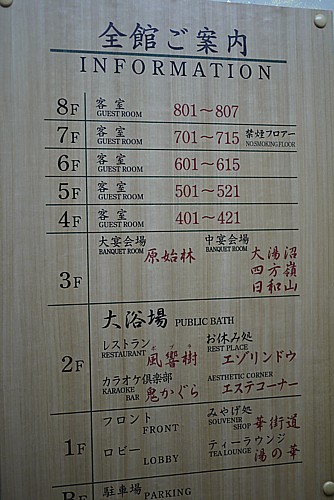 全館ご案内
INFORMATION
8F 客室 GUEST ROOM 801〜807
7F 客室 GUEST ROOM 701〜715 禁煙フロアー NO SMOKING FLOOR
6F 客室 GUEST ROOM 601〜615
5F 客室 GUEST ROOM 501〜521
4F 客室 GUEST ROOM 401〜421
3F 大宴会場 BANQUET ROOM 原始林 中宴会場 BANQUET ROOM 大湯沼
四方嶺
日和山
大浴場 PUBLIC BATH
2F レストラン RESTAURANT 風響樹 お休み処 REST PLACE エゾリンドウ
カラオケ倶楽部 KARAOKE BAR 鬼かぐら AESTHETIC CORNER エステコーナー
1F フロント FRONT みやげ処 SOUVENIR SHOP 華街道
ロビー LOBBY ティーラウンジ TEA LOUNGE 湯の華
駐車場 PARKING